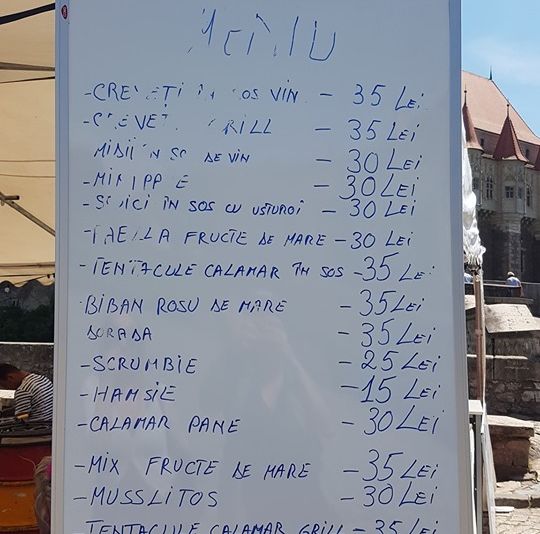 - CREVEȚI ÎN SOS VIN - 35 LEI
GRILL - 35 LEI
DE VIN - 30 LEI
- 30 LEI
ÎN SOS CU USTUROI - 30 LEI
- PAELLA FRUCTE DE MARE - 30 LEI
- TENTACULE CALAMAR ÎN SOS - 35 LEI
BIBAN ROSU DE MARE - 35 LEI
DORADA - 35 LEI
- SCRUMBIE - 25 LEI
- HAMSIE - 15 LEI
- CALAMAR PANE - 30 LEI
- MIX FRUCTE DE MARE - 35 LEI
- MUSSLITOS - 30 LEI
TENTACULE CALAMAR GRILL - 35 LEI